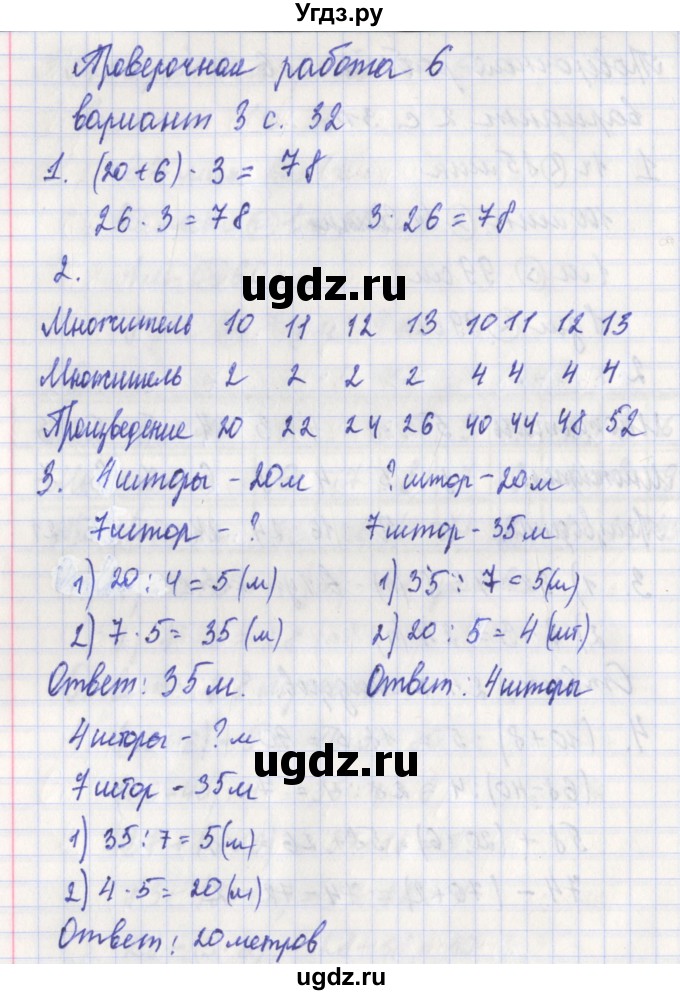 Угdз.ру
Проверочная работа 6
вариант 3 с. 32
1. (20+6) · 3 = 78
26 · 3 = 78 3 · 26 = 78
2.
ugdz.ru
Множитель 10 11 12 13 10 11 12 13
Множитель 2 2 2 2 4 4 4 4
Произведение 20 22 24 26 40 44 48 52
3. 4 шторы – 20 м
7 штор – ?
1) 20 : 4 = 5 (м)
2) 7 · 5 = 35 (м)
Ответ: 35 м.
? штор – 20 м
7 штор – 35 м
1) 35 : 7 = 5 (м)
2) 20 : 5 = 4 (шт.)
Ответ: 4 шторы
4 шторы – ? м
ugdz.ru
7 штор – 35 м
1) 35 : 7 = 5 (м)
2) 4 · 5 = 20 (м)
Ответ: 20 метров
ugdz.ru